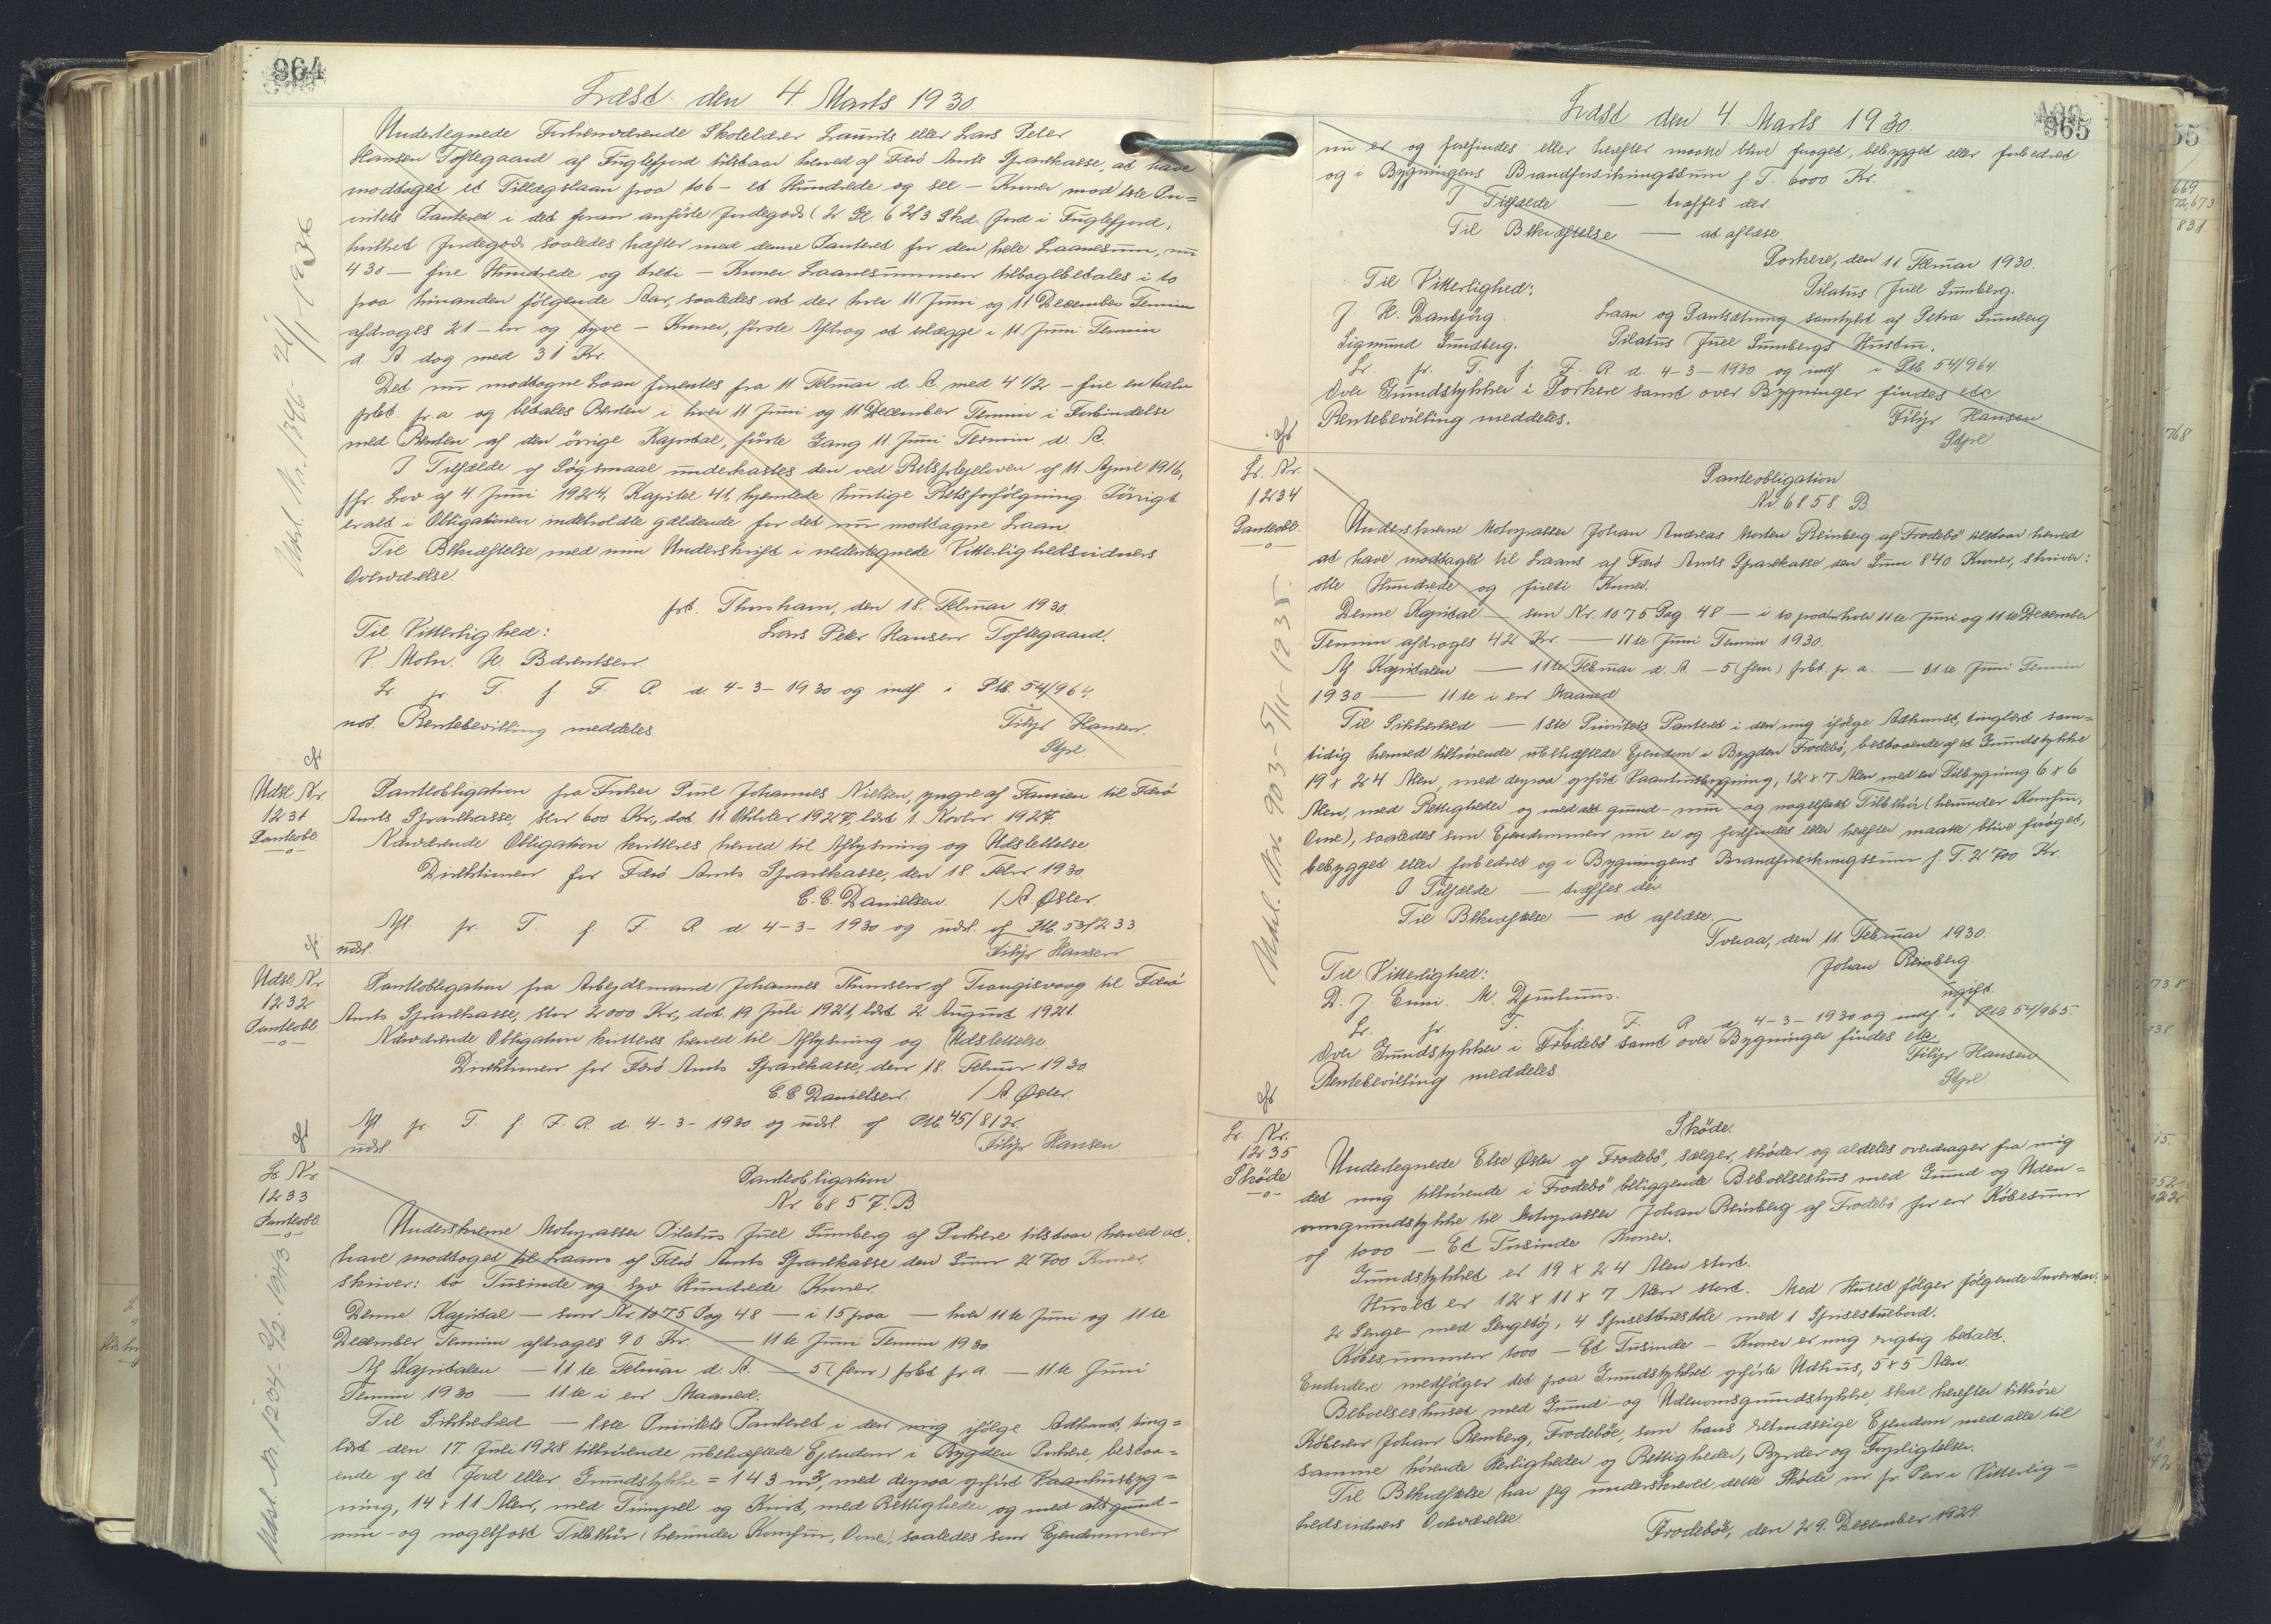 964
Læst den 4. Marts 1930.
Undertegnede Forhenværende Skolelærer Laurits eller Lars Peter
Hansen Toftegaard af Fuglefjord tilstaar herved af Færö Amts Sparekasse, at have
modtaget et Tillægslaan paa 106 - et Hundrede og seks - Kroner mod 1ste Pri=
oritets Panteret i det foran anförte Jordegods (2 Gl. 6 2/3 Skd. Jord i Fuglefjord,
hvilket Jordegods saaledes hæfter med denne Panteret for den hele Laanesum, nu
430 — fire Hundrede og treti - Kroner. Laanesummen tilbagebetales i to
paa hinanden fölgende Aar, saaledes at der hver 11 Juni og 11 December Termin
afdrages 21 - en og tyve - Kroner, förste Afdrag at erlægge i 11 Juni Termin
d. A. dog med 31 Kr.
Det nu modtagne Laan forrentes fra 11 Februar d. A. med 4 1/2 - fire en halv
prct. p.a. og betales Renten i hver 11 Juni og 11 December Termin i Forbindelse
med Renten af den övrige Kapital, förste Gang 11 Juni Termin d. A.
I Tilfælde af Sögsmaal underkastes den ved Retsplejeloven af 11. April 1916,
jfr. Lov af 4. Juni 1924, Kapitel 41, hjemlede hurtige Retsforfölgning. Iövrigt
er alt i Obligationen indeholdte gældende for det nu modtagne Laan.
Til Bekræftelse med min Underskrift i nedentegnede Vitterlighedsvidners
Overværelse.
pt. Thorshavn, den 18. Februar 1930.
Til Vitterlighed:
Lars Peter Hansen Toftegaard.
V. Mohr. H. Bærentsen.
L. pr. T. f. F. R. d. 4-3-1930 og indf. i Ptb. 54/964.
not. Rentebevilling meddeles
Filip Hansen.
Stpl.
Udsl. Nr. 1346 - 21/1-1936
Udsl. Nr.
1231
Panteobl.
Panteobligation fra Fisker Poul Johannes Nielsen, yngre af Famien til Færö
Amts Sparekasse, stor 600 Kr., dat. 11 Oktober 1927, læst 1. Novbr. 1927.
Nærværende Obligation kvitteres herved til Aflysning og Udslettelse.
Direktionen for Færö Amts Sparekasse, den 18. Febr. 1930.
C. C. Danielsen. / A. Öster.
Afl. pr. T. f. F. R. d. 4-3-1930 og udsl. af Ptb. 53/233.
udsl.
Filip Hansen
Udsl. Nr.
1232
Panteobl.
Panteobligation fra Arbejdsmand Johannes Thomsen af Trangisvaag til Færö
Amts Sparekasse, stor 2000 Kr., dat. 19. Juli 1921, læst 2. August 1921.
Nærværende Obligation kvitteres herved til Aflysning og Udslettelse.
Direktionen for Færö Amts Sparekasse, den 18. Februar 1930
C. C. Danielsen. / A. Öster.
Afl. pr. T. f. F. R. d. 4-3-1930 og udsl. af Ptb. 45/812.
udsl.
Filip Hansen
L. Nr.
1233
Panteobl.
Panteobligation
Nr. 6857. B.
Underskrevne Motorpasser Pilatus Juel Sumberg af Porkere tilstaar herved at
have modtaget til Laans af Færö Amts Sparekasse den Sum 2700 Kroner,
skriver: to Tusinde og syv Hundrede Kroner.
Denne Kapital — som Nr. 1075 Pag. 48 — i 15 paa — hver 11te Juni og 11te
December Termin afdrages 90 Kr. — 11te Juni Termin 1930
Af Kapitalen — 11te Februar d. A. — 5 (fem) prct. p.a. — 11te Juni
Termin 1930 — 11te i en Maaned.
Til Sikkerhed — 1ste Prioritets Panteret i den mig ifölge Adkomst, ting=
læst den 17. Juli 1928 tilhörende ubehæftede Ejendom i Bygden Porkere, bestaa=
ende af et Jord eller Grundstykke = 143 m², med derpaa opfört Vaanhusbyg=
ning, 14 x 11 Alen, med Trappel og Kvist, med Rettigheder og med alt grund-
mur- og nagelfast Tilbehör (herunder Komfur, Ovne), saaledes som Ejendommen
Udsl. Nr. 1204 - 9/2-1943
965
Læst den 4. Marts 1930.
nu er og forefindes eller herefter maatte blive foröget, bebygget eller forbedret
og i Bygningens Brandforsikringssum p. T. 6000 Kr.
I Tilfælde — træffes der.
Til Bekræftelse — at aflæse.
Porkere, den 11. Februar 1930.
Til Vitterlighed:
Pilatus Juel Sumberg.
J. H. Danbjörg.
Laan og Pantsætning samtykt af Petra Sumberg
Sigmund Sundberg.
Pilatus Juel Sumbergs Hustru.
L. pr. T. f. F. R. d. 4-3-1930 og indf. i Ptb. 54/964
Over Grundstykker i Porkere samt over Bygninger findes etc
Rentebevilling meddeles.
Filip Hansen
Stpl
L. Nr.
1234
Panteobl.
Panteobligation
Nr 6858. B.
Underskrevne Motorpasser Johan Andreas Morten Reinberg af Frodebö tilstaar herved
at have modtaget til Laans af Færö Amts Sparekasse den Sum 840 Kroner, skriver:
otte Hundrede og firti Kroner.
Denne Kapital — som Nr. 1075 Pag. 48 — i 10 paa — hver 11te Juni og 11te December
Termin afdrages 42 Kr. — 11te Juni Termin 1930.
Af Kapitalen — 11te Februar d. A. — 5 (fem) prct. p. a. — 11te Juni Termin
1930 — 11te i en Maaned
Til Sikkerhed — 1ste Prioritets Panteret i den mig ifölge Adkomst, tinglæst sam=
tidig hermed tilhörende ubehæftede Ejendom i Bygden Frodebö, bestaaende af et Grundstykke
19 x 24 Alen, med derpaa opfört Vaanhusbygning, 12 x 7 Alen med en Tilbygning 6 x 6
Alen, med Rettigheder og med alt grund- mur- og nagelfast Tilbehör (herunder Komfur,
Ovne), saaledes som Ejendommen nu er og forefindes eller herefter maatte blive foröget,
bebygget eller forbedret og i Bygningens Brandforsikringssum p. T. 2700 Kr.
I Tilfælde — træffes der.
Til Bekræftelse — at aflæse.
Tveraa, den 11. Februar 1930.
Til Vitterlighed:
Johan Reinberg
D. J. Enni. M. Djurhuus.
ugift.
L. pr. T. f. F. R. d. 4-3-1930 og indf. i Ptb 54/965.
Over Grundstykker i Frodebö samt over Bygninger findes etc
Rentebevilling meddeles.
Filip Hansen
Stpl
Udsl. Nr. 903 - 5/11-1935.
L. Nr.
1235
Sköde
Sköde.
Undertegnede Else Öster af Frodebö, sælger, sköder og aldeles overdrager fra mig
det mig tilhörende i Frodebö beliggende Beboelseshus med Grund og Uden=
omsgrundstykke til Motorpasser Johan Reinberg af Frodebö for en Köbesum
af 1000 — Et Tusinde Kroner.
Grundstykket er 19 x 24 Alen stort.
Huset er 12 x 11 x 7 Alen stort. Med Huset fölger fölgende Inventar.
2 Senge med Sengetöj, 4 Spisestuestole med 1 Spisestuebord.
Köbesummen 1000 — Et Tusinde — Kroner er mig rigtig betalt.
Endvidere medfölger det paa Grundstykket opförte Udhus, 5 x 5 Alen.
Beboelseshuset med Grund- og Udenomsgrundstykke, skal herefter tilhöre
Köberen Johan Reinberg, Frodeböe, som hans retmæssige Ejendom med alle til
samme hörende Herligheder og Rettigheder, Byrder og Forpligtelser.
Til Bekræftelse har jeg underskrevet dette Sköde m. f. Pen i Vitterlig=
hedsvidners Overværelse.
Frodeböe, den 29. December 1929.